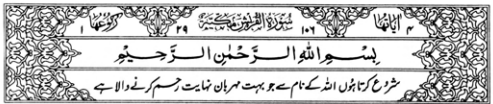 ۴ اٰيَاتُهَا ۱۰۶ سُوْرَةُ الْقُرَيْشِ مَكِّيَّةٌ ۲۹ رُكُوْعُهَا ۱
بِسْمِ اللّٰهِ الرَّحْمٰنِ الرَّحِيْمِ
شروع کرتا ہوں اللہ کے نام سے جو بہت مہربان نہایت رحم کرنے والا ہے